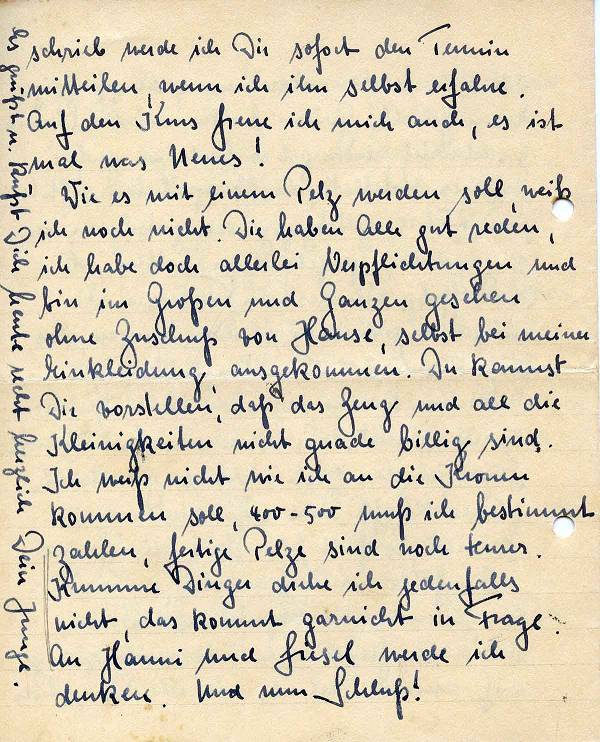 schrieb werde ich Dir sofort den Termin
mitteilen, wenn ich ihn selbst erfahre.
Auf den Kurs freue ich mich auch, es ist
mal was Neues!
Wie es mit einem Pelz werden soll, weiß
ich noch nicht. Die haben Alle gut reden,
ich habe doch allerlei Verpflichtungen und
bin im Großen und Ganzen gesehen
ohne Zuschuß von Hause, selbst bei meiner
Einkleidung, ausgekommen. Du kannst
Dir vorstellen, daß das Zeug und all die
Kleinigkeiten nicht grade billig sind.
Ich weiß nicht wie ich an die Kronen
kommen soll, 400-500 muß ich bestimmt
zahlen, fertige Pelze sind noch teurer.
Krumme Dinger drehe ich jedenfalls
nicht, das kommt garnicht in Frage.
An Hanni und Gusel werde ich
denken. Und nun Schluß!
Es grüßt u. küßt Dich heute recht herzlich Dein Junge.